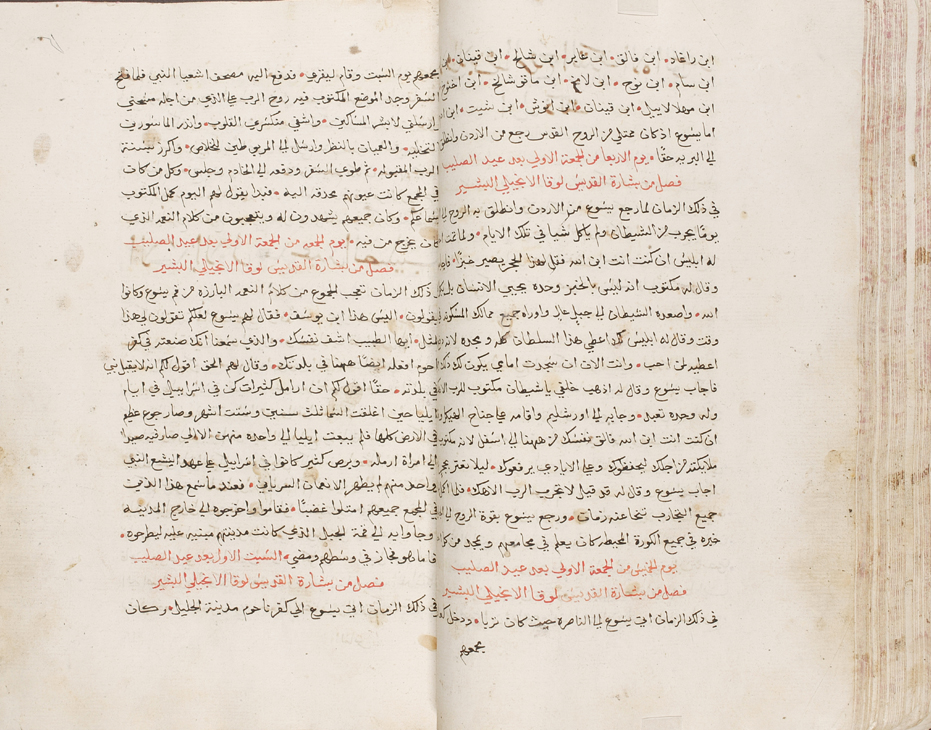 ابن راغاو • ابن فالق • ابن عابر • ابن شالح • ابن قينان • ابن
ابن سام • ابن نوح • ابن لامخ • ابن ماتوشالخ • ابن اخنوخ
ابن مهلالاييل • ابن قينان • ابن انوش • ابن شيت • ابن اد
اما يسوع اذ كان ممتلي من الروح القدس رجع من الاردن وانطلق
الي البريه حقا • يوم الاربعا من الجمعة الاولي بعد عيد الصليب
فصل من بشارة القديس لوقا الانجيلي البشير
في ذلك الزمان لما رجع يسوع من الاردن وانطلق به الروح
يوما يجرب من الشيطان ولم ياكل شيا في تلك الايام • ولما تمت
له ابليس ان كنت انت ابن الله فقل لهذا الحجر يصير خبزا •
وقال له مكتوب انه ليس بالخبز وحده يحيي الانسان بل بكل
الله • واصعده الشيطان الي جبل عال واوراه جميع ممالك المسكونه
وقت وقال له ابليس لك اعطي هذا السلطان كله ومجده لانه
اعطيه لمن احب • وانت الان ان سجدت امامي يكون لك
فاجاب يسوع وقال له اذهب خلفي يا شيطان مكتوب للرب
وله وحده تعبد • وجا به الي اورشليم واقامه علي جناح الهيكل
ان كنت انت ابن الله فالق نفسك من ههنا الي اسفل لانه مكتوب
ملايكته من اجلك ليحفظوك وعلي الايادي يرفعوك • ليلا تعثر
اجاب يسوع وقال له قد قيل لا تجرب الرب الاهك • فلما اكمل
جميع التجارب تنحا عنه زمان • ورجع يسوع بقوة الروح الي
خبره في جميع الكورة المحيط كان يعلم في مجامعهم ويمجد من
يوم الخميس من الجمعة الاولي بعد عيد الصليب
فصل من بشارة القديس لوقا الانجيلي البشير
في ذلك الزمان اتي يسوع الي الناصرة حيث كان تربا • ودخل
مجمعهم
مجمعهم يوم السبت وقام ليقري • فدفع اليه مصحف اشعيا النبي فلما فتح
السفر وجد الموضع المكتوب فيه روح الرب علي الذي من اجله مسحني
ارسلني لابشر المساكين • واشفي منكسري القلوب • وانذر الماسورين
بالتخليه • والعميان بالنظر وارسل الي المربوطين بالخلاص • واكرز بسنة
الرب المقبوله • ثم طوي السفر ودفعه الي الخادم وجلس • وكل من كان
في المجمع كانت عيونهم محدقه اليه • فبدا يقول لهم اليوم كمل المكتوب
بسماعكم • وكان جميعهم يشهدون له ويتعجبون من كلام النعمه الذي
كان يخرج من فيه • يوم الجمعه من الجمعة الاولي بعد عيد الصليب
فصل من بشارة القديس لوقا الانجيلي البشير
في ذلك الزمان تعجب الجموع من كلام النعمه البارزه من فم يسوع وكانوا
يقولون • اليس هذا ابن يوسف • فقال لهم يسوع لعلكم تقولون لي هذا
المثل • ايها الطبيب اشف نفسك • والذي سمعنا انك صنعته في كفر
ناحوم افعله ايضا ههنا في بلدتك • وقال لهم الحق اقول لكم انه لا يقبل نبي
في بلدته • حقا اقول لكم ان ارامل كثيرات كن في اسراييل في ايام
ايليا حين اغلقت السما ثلث سنين وستت اشهر وصار جوع عظيم
في الارض كلها فلم يبعث ايليا الي واحده منهن الا الي صارفيه صيدا
الي امراة ارمله • وبرص كثير كانوا في اسراييل علي عهد اليشع النبي
وواحد منهم لم يطهر الا نعمان السرياني • فعند ما سمع هذا الذين
في المجمع جميعهم امتلوا غضبا • فقاموا واخرجوه الي خارج المدينه
وجاوا به الي قمة الجبل الذي كانت مدينتهم مبنيه عليه ليطرحوه •
فاما هو فجاز في وسطهم ومضي • السبت الاول بعد عيد الصليب
فصل من بشارة القديس لوقا الانجيلي البشير
في ذلك الزمان اتي يسوع الي كفرناحوم مدينة الجليل • وكان